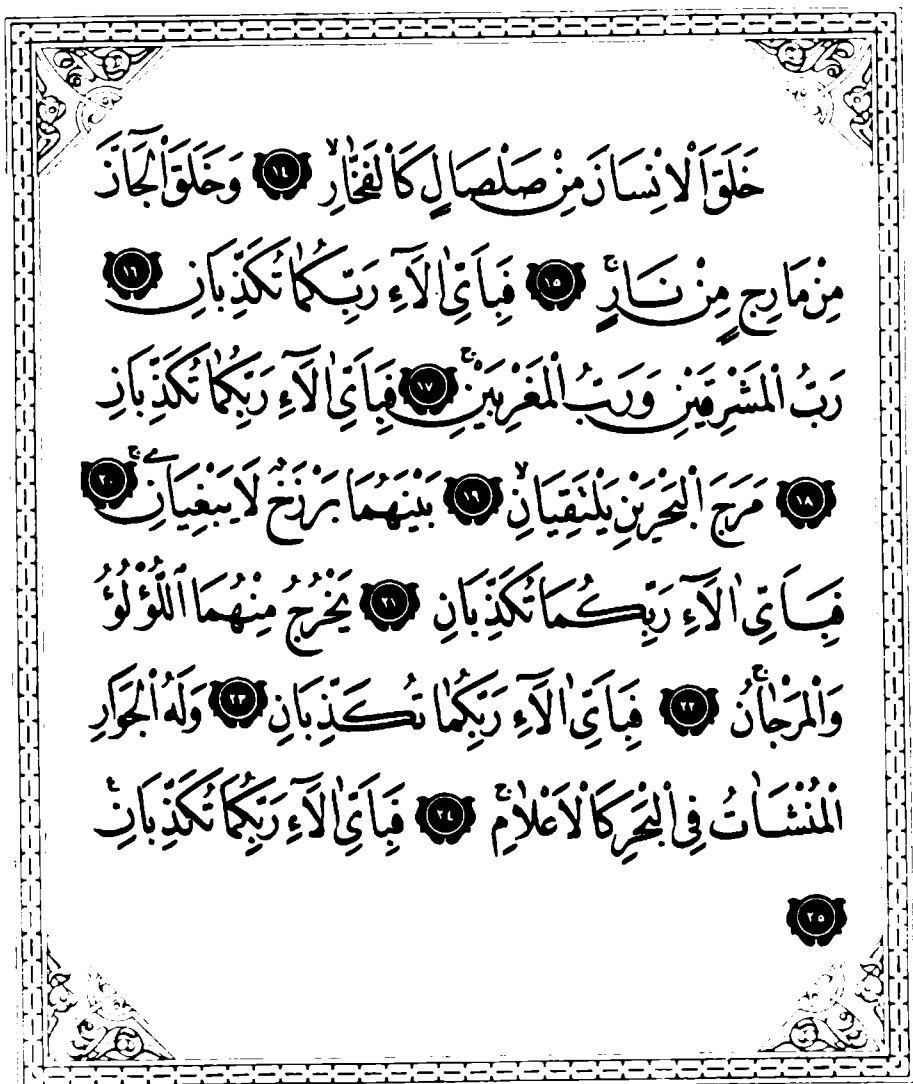 خَلَقَ الْاِنْسَانَ مِنْ صَلْصَالٍ كَالْفَخَّارِۙ ﴿١٤﴾ وَخَلَقَ الْجَٓانَّ
مِنْ مَارِجٍ مِنْ نَارٍۚ ﴿١٥﴾ فَبِاَيِّ اٰلَٓاءِ رَبِّكُمَا تُكَذِّبَانِ ﴿١٦﴾
رَبُّ الْمَشْرِقَيْنِ وَرَبُّ الْمَغْرِبَيْنِۚ ﴿١٧﴾ فَبِاَيِّ اٰلَٓاءِ رَبِّكُمَا تُكَذِّبَانِ
﴿١٨﴾ مَرَجَ الْبَحْرَيْنِ يَلْتَقِيَانِۙ ﴿١٩﴾ بَيْنَهُمَا بَرْزَخٌ لَا يَبْغِيَانِۚ ﴿٢٠﴾
فَبِاَيِّ اٰلَٓاءِ رَبِّكُمَا تُكَذِّبَانِ ﴿٢١﴾ يَخْرُجُ مِنْهُمَا اللُّؤْلُؤُ
وَالْمَرْجَانُۚ ﴿٢٢﴾ فَبِاَيِّ اٰلَٓاءِ رَبِّكُمَا تُكَذِّبَانِ ﴿٢٣﴾ وَلَهُ الْجَوَارِ
الْمُنْشَاٰتُ فِي الْبَحْرِ كَالْاَعْلَامِۚ ﴿٢٤﴾ فَبِاَيِّ اٰلَٓاءِ رَبِّكُمَا تُكَذِّبَانِ۟
﴿٢٥﴾